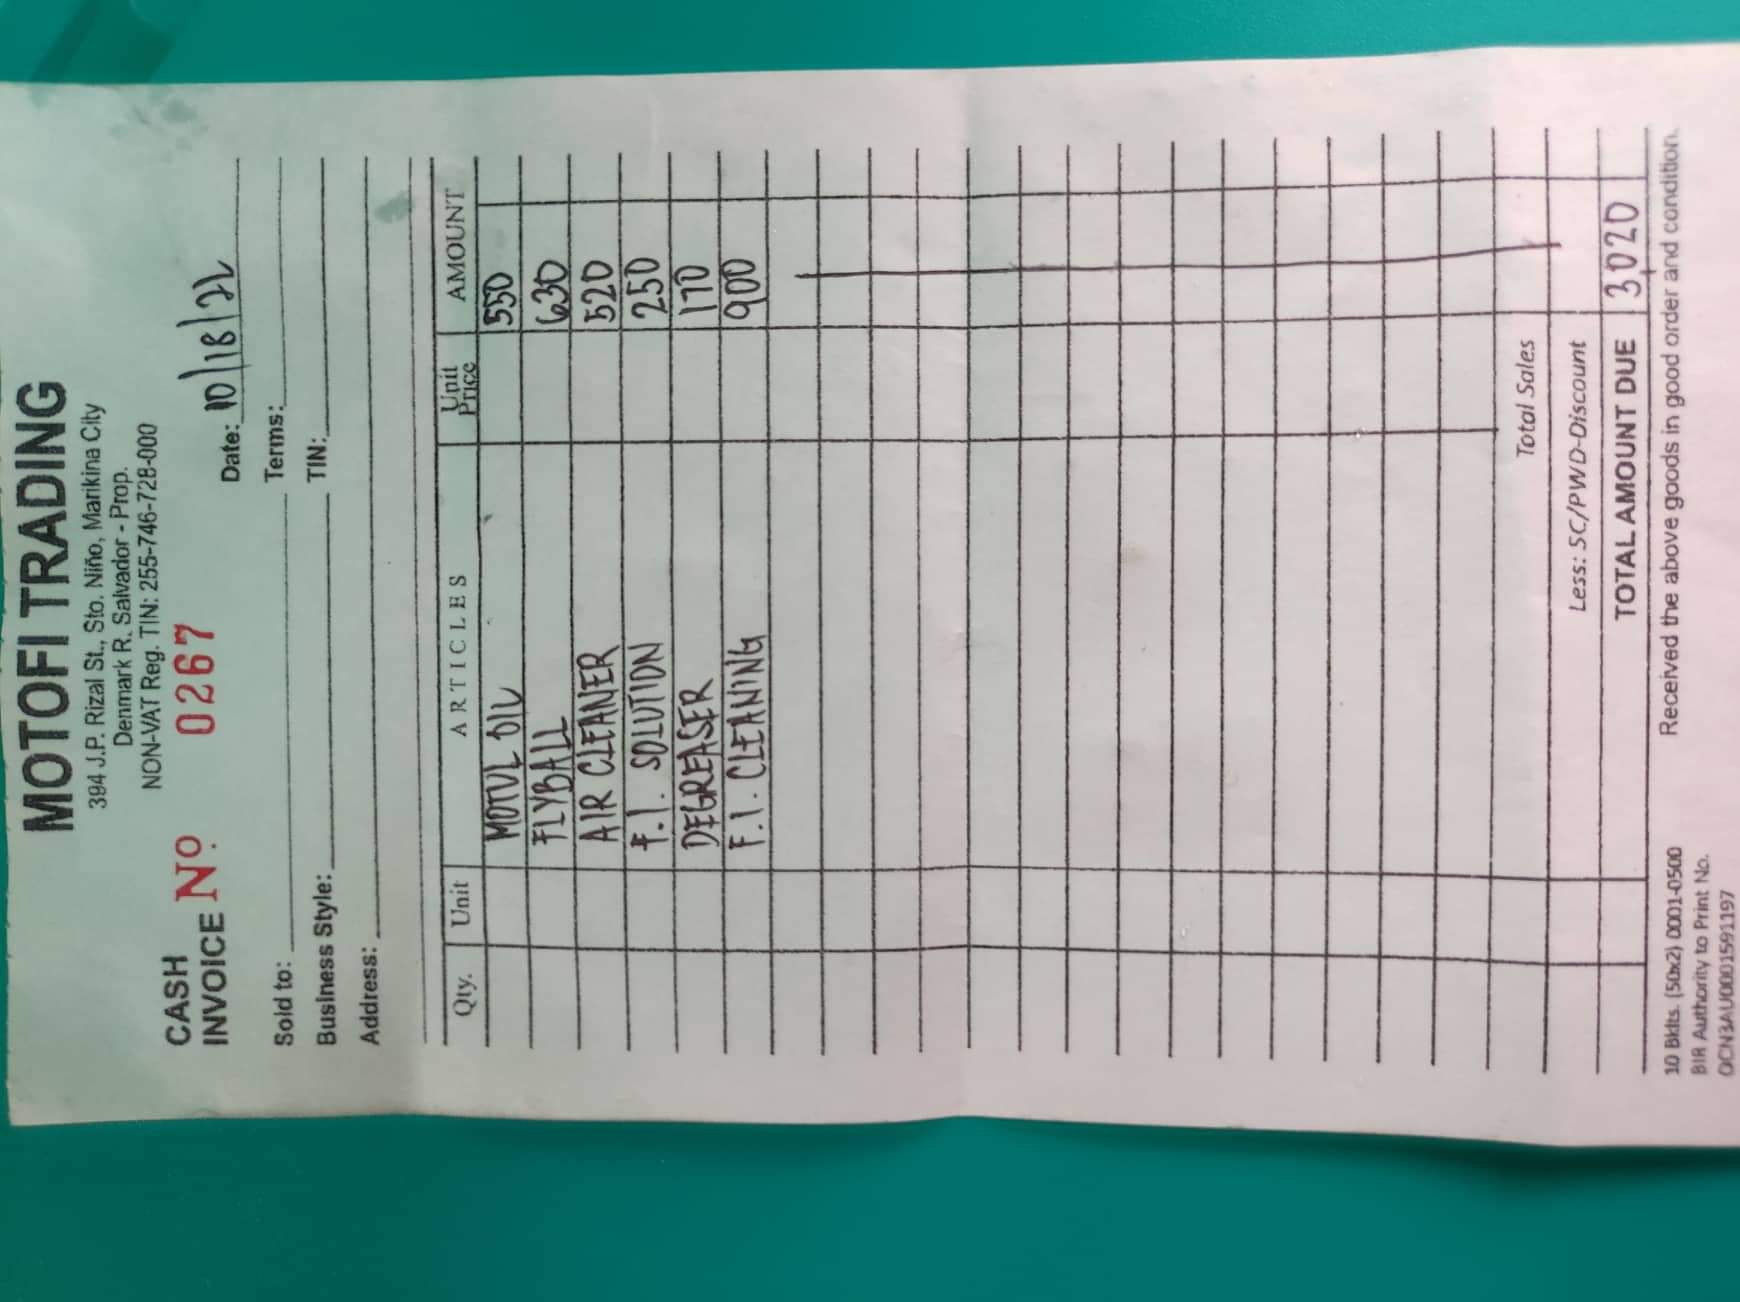 MOTOFI TRADING
394 J.P. Rizal St., Sto. Niño, Marikina City
Denmark R. Salvador - Prop.
NON-VAT Reg. TIN: 255-746-728-000
CASH
INVOICE Nº 0267
Date: 10/18/22
Sold to: Terms:
Business Style: TIN:
Address:
Qty. Unit ARTICLES Unit Price AMOUNT
MOTUL OIL 550
FLYBALL 630
AIR CLEANER 520
F.I. SOLUTION 250
DEGREASER 170
F.I. CLEANING 900
Total Sales
Less: SC/PWD-Discount
TOTAL AMOUNT DUE 3,020
10 Bklts. (50x2) 0001-0500
BIR Authority to Print No.
OCN3AU0001591197
Received the above goods in good order and condition.